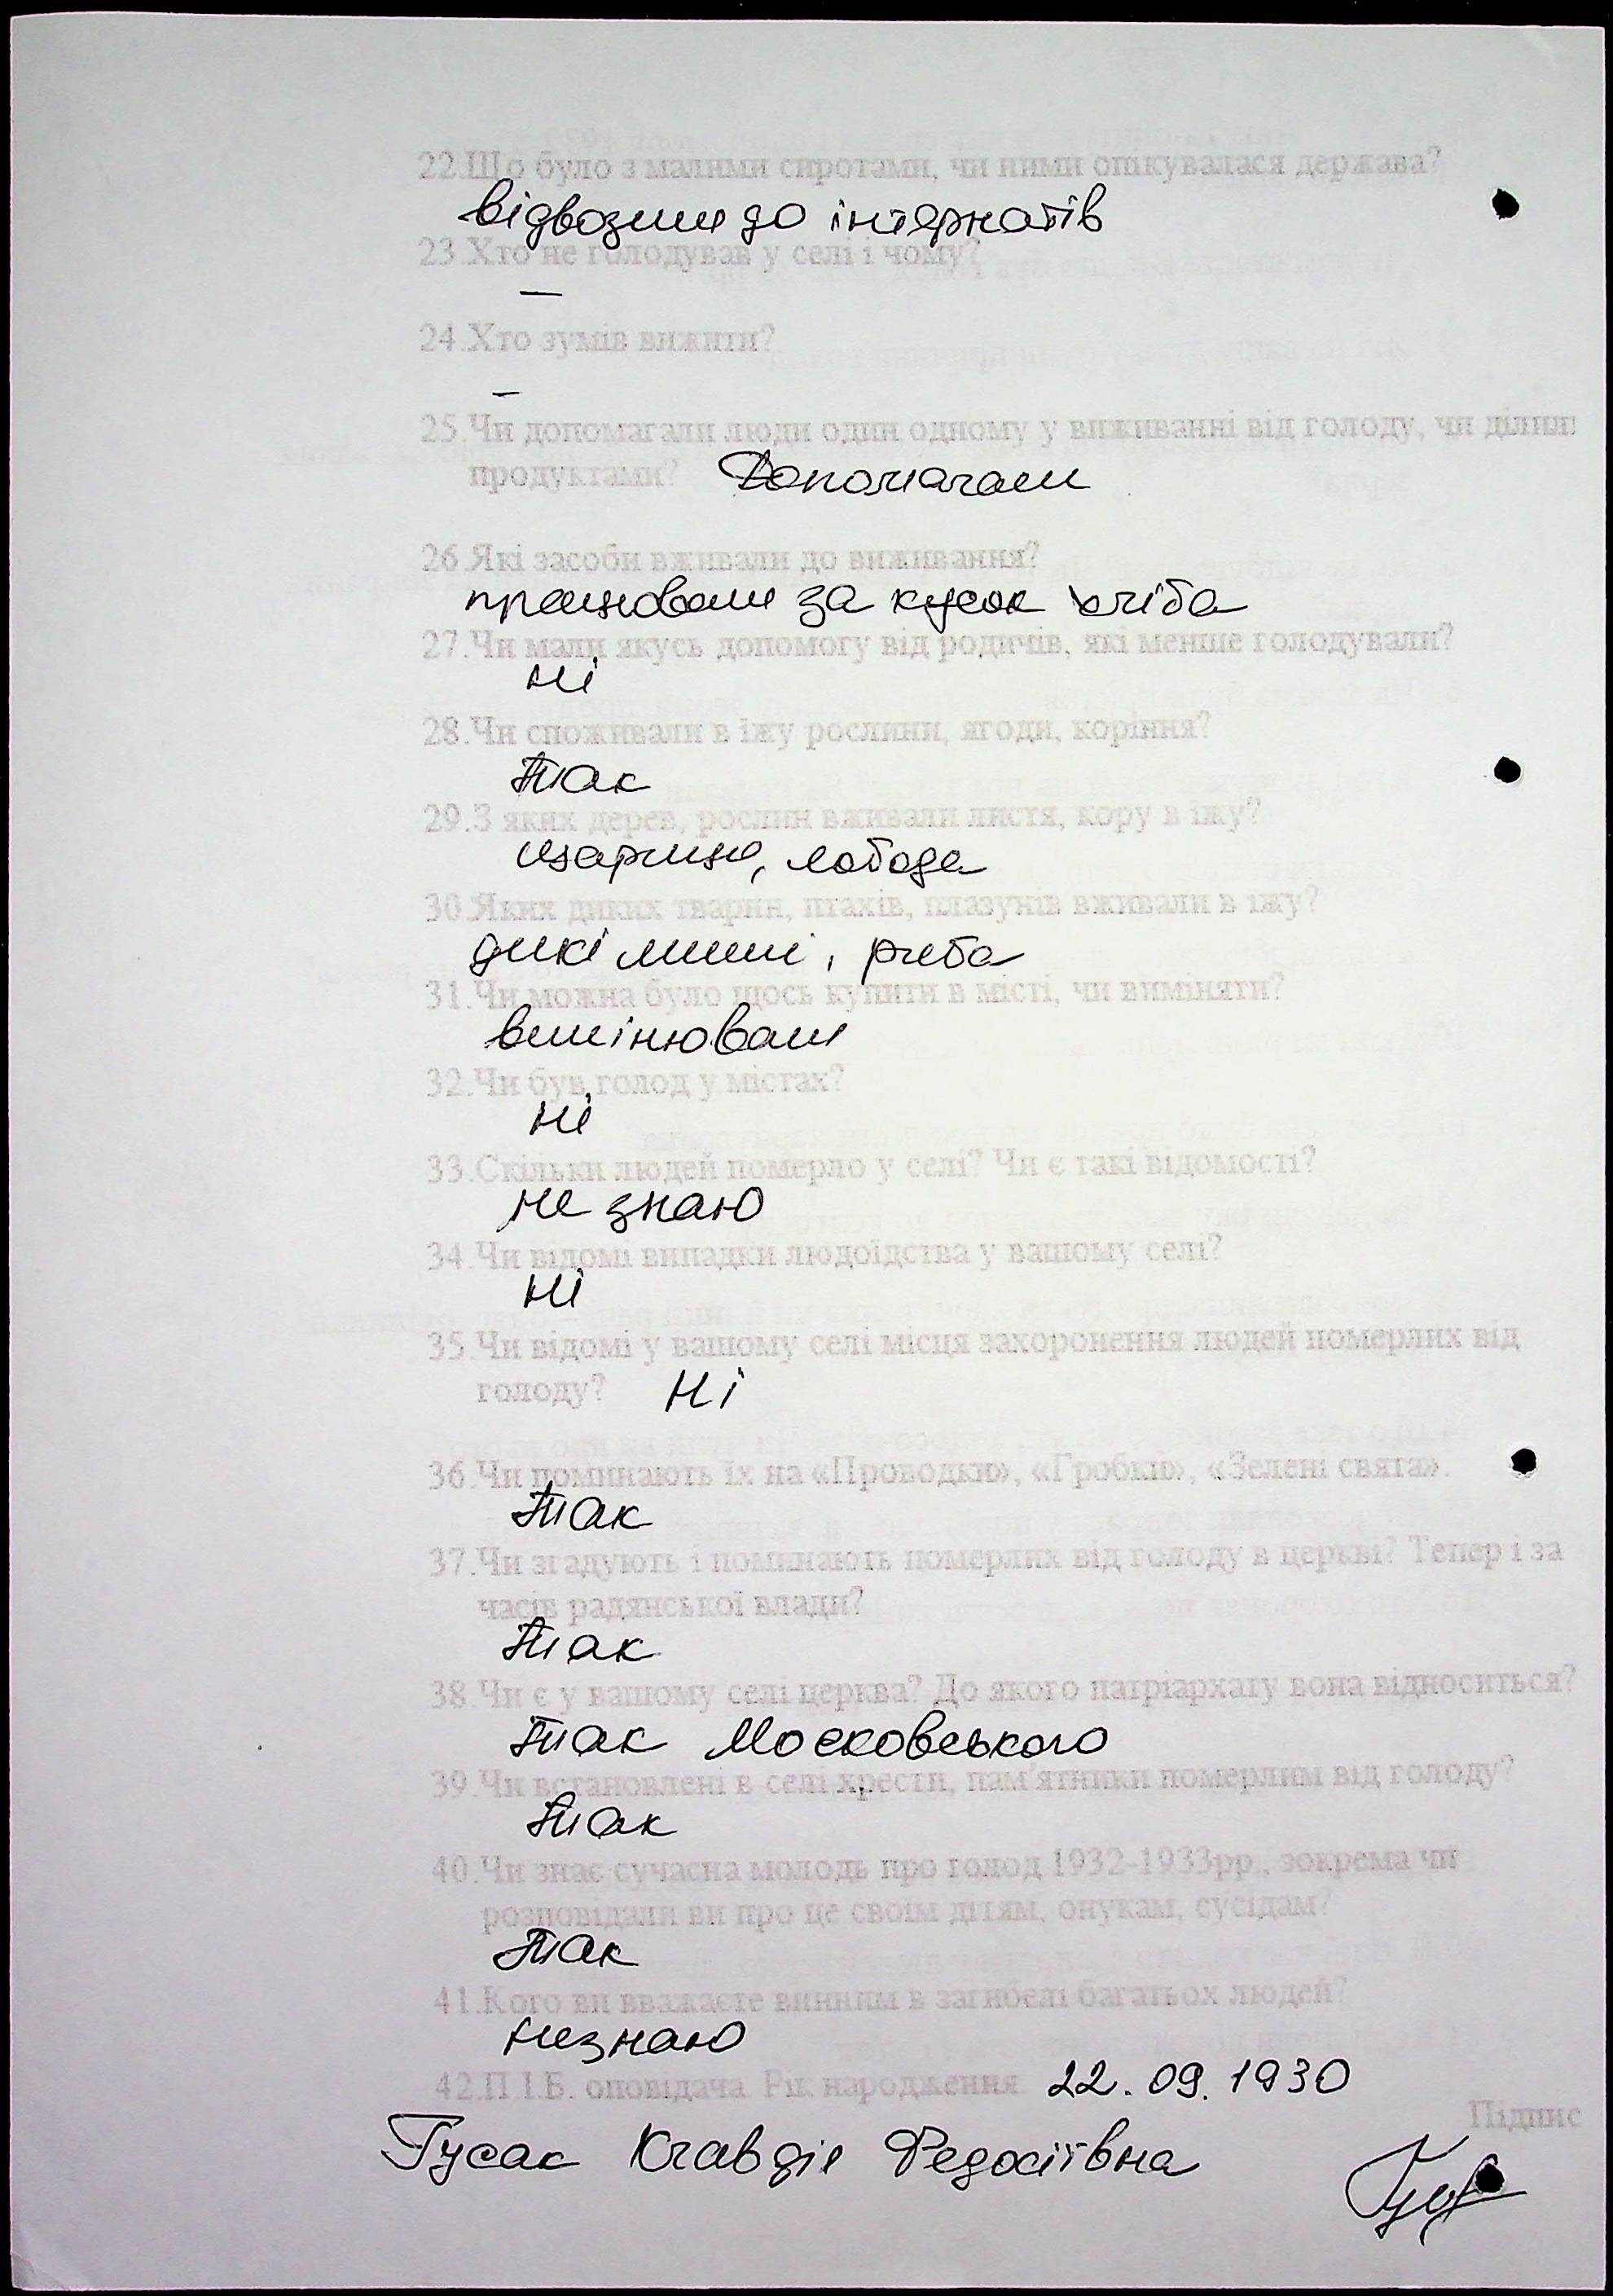 22.Що було з малими сиротами, чи ними опікувалася держава?
відвозили до інтернатів
23.Хто не голодував у селі і чому?
—
24.Хто зумів вижити?
–
25.Чи допомагали люди один одному у виживанні від голоду, чи ділили
продуктами? Допомагали
26.Які засоби вживали до виживання?
працювали за кусок хліба
27.Чи мали якусь допомогу від родичів, які менше голодували?
ні
28.Чи споживали в їжу рослини, ягоди, коріння?
Так
29.З яких дерев, рослин вживали листя, кору в їжу?
лобода
30.Яких диких тварин, птахів, плазунів вживали в їжу?
дикі миші, риба
31.Чи можна було щось купити в місті, чи виміняти?
вимінювали
32.Чи був голод у містах?
ні
33.Скільки людей померло у селі? Чи є такі відомості?
не знаю
34.Чи відомі випадки людоїдства у вашому селі?
ні
35.Чи відомі у вашому селі місця захоронення людей померлих від
голоду? Ні
36.Чи поминають їх на «Проводки», «Гробки», «Зелені свята».
Так
37.Чи згадують і поминають померлих від голоду в церкві? Тепер і за
часів радянської влади?
Так
38.Чи є у вашому селі церква? До якого патріархату вона відноситься?
Так Московського
39.Чи встановлені в селі хрести, пам'ятники померлим від голоду?
Так
40.Чи знає сучасна молодь про голод 1932-1933рр., зокрема чи
розповідали ви про це своїм дітям, онукам, сусідам?
Так
41.Кого ви вважаєте винним в загибелі багатьох людей?
незнаю
42.П.І.Б. оповідача. Рік народження 22.09.1930
Підпис
Гусак Клавдія Федосіївна